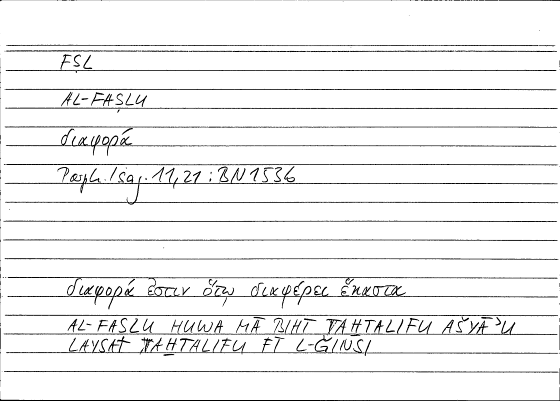 FṢL
AL-FAṢLU
διαφορά
Porph. Isag. 11,21 : BN 153b
διαφορά ἐστιν ὅτῳ διαφέρει ἕκαστα
AL-FAṢLU HUWA MĀ BIHĪ TAḪTALIFU AŠYĀʾU
LAYSAT TAḪTALIFU FĪ L-ǦINSI